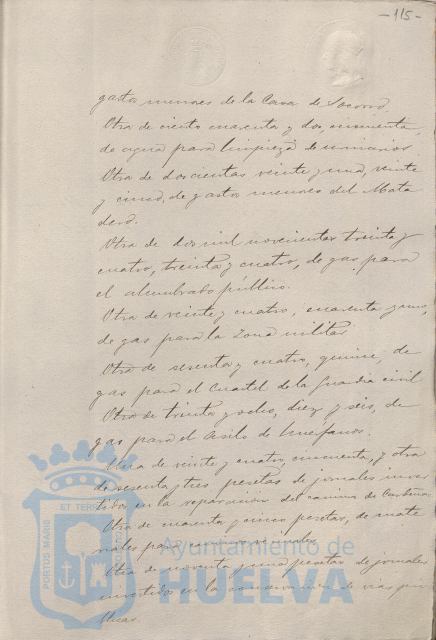 - 115 -
gastos menores de la Casa de Socorro
Otra de ciento cuarenta y dos, cincuenta,
de agua para limpieza de urinarios
Otra de doscientas veinte y una, veinte
y cinco, de gastos menores del Mata
dero.
Otra de dos mil novecientas treinta y
cuatro, treinta y cuatro, de gas para
el alumbrado público.
Otra de veinte y cuatro, cuarenta y uno,
de gas para la Zona militar
Otra de sesenta y cuatro, quince, de
gas para el Cuartel de la Guardia civil
Otra de treinta y ocho, diez y seis, de
gas para el Asilo de huérfanos.
Otra de veinte y cuatro, cincuenta, y otra
de sesenta y tres pesetas de jornales inver
tidos en la reparación del camino de
Otra de cuarenta y cinco pesetas, de mate
riales para caminos vecinales
Otra de noventa y una pesetas de jornales
invertidos en la conservación de vías pú
blicas.
PORTUS MARIS ET TERRE
Ayuntamiento de
HUELVA